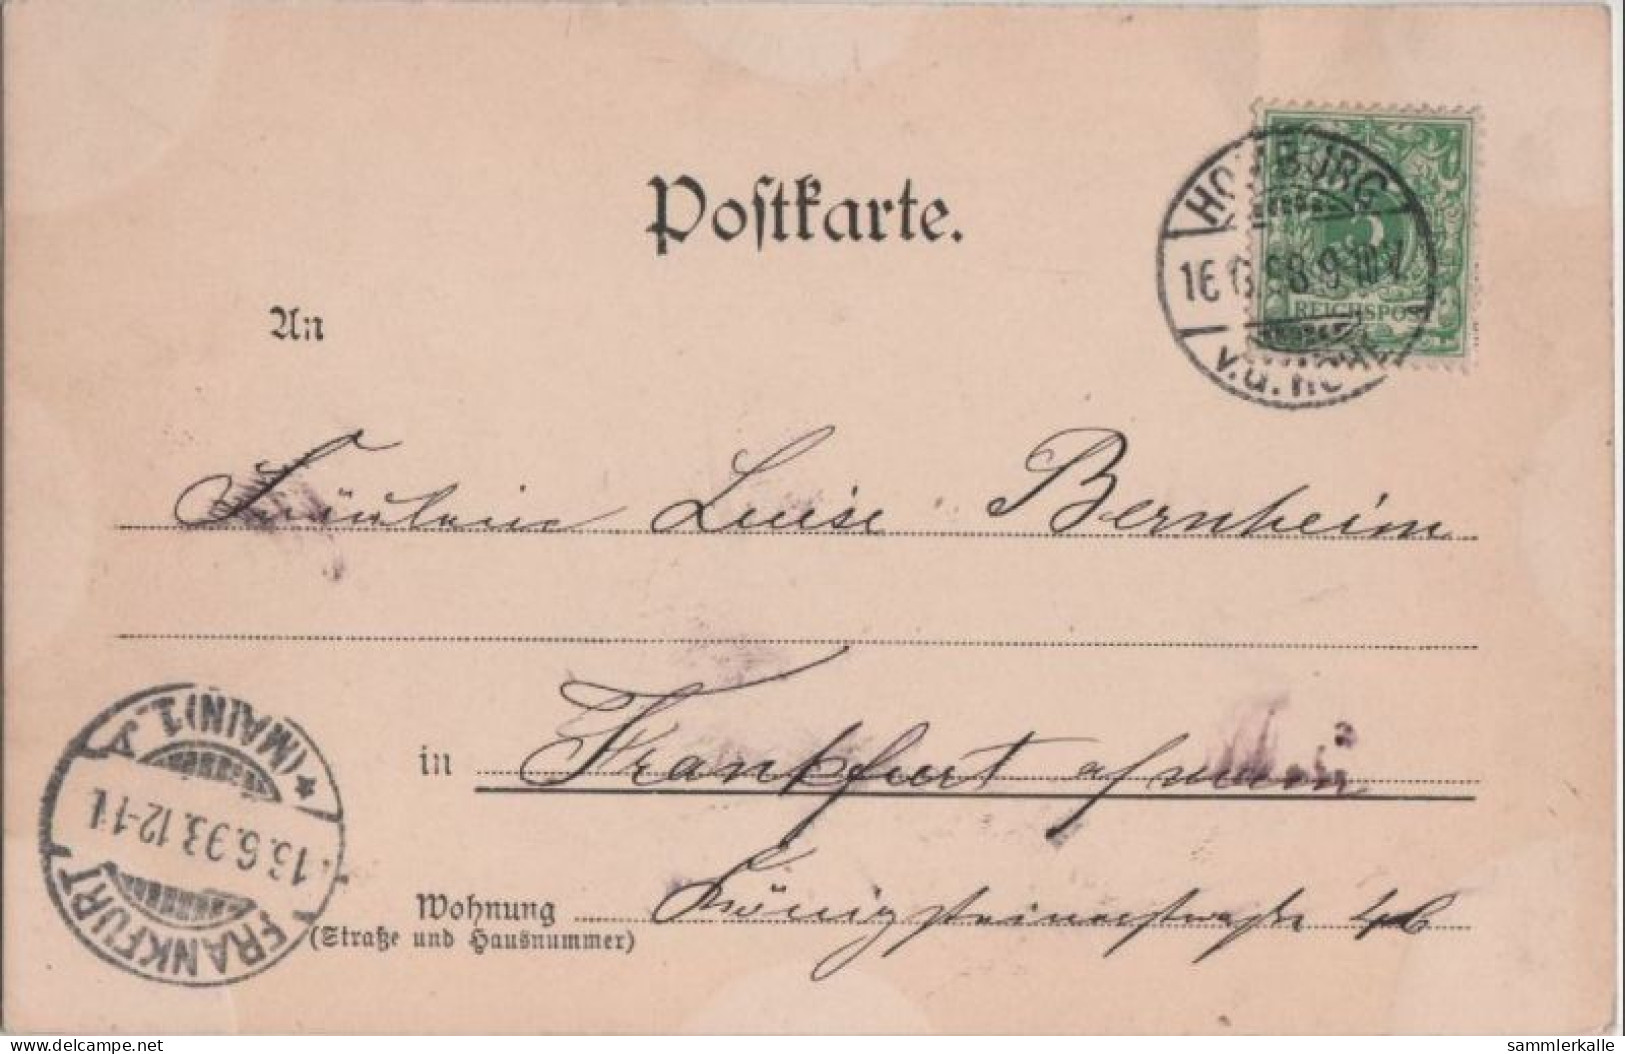 Postkarte.
HOMBURG
16 6 98 9-10 V.
v.d. HÖHE
REICHSPOST
An
Fräulein Luise Bernheim
in Frankfurt a/main
Wohnung Königsteinerstrasse 46
(Straße und Hausnummer)
FRANKFURT
12-1
(MAIN) 1.
www.delcampe.net
sammlerkalle